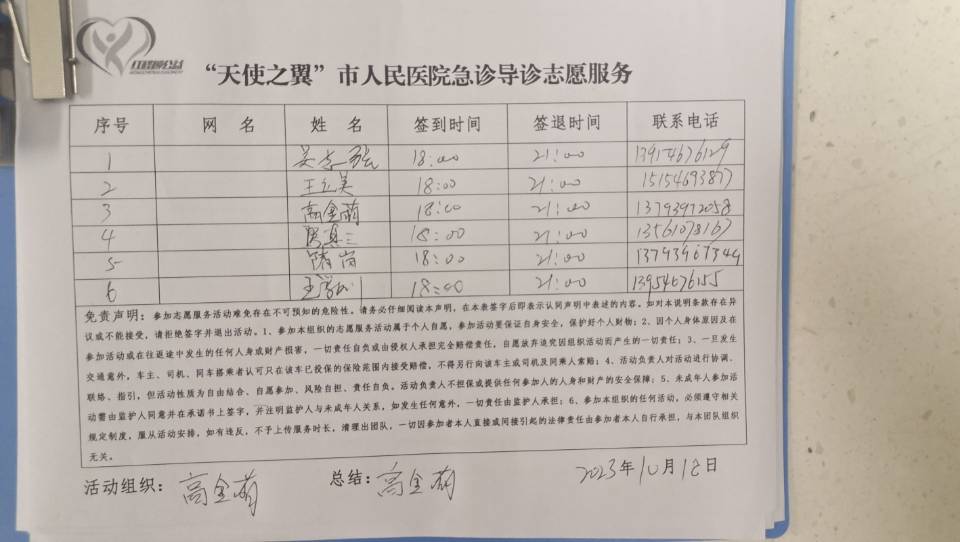 红丝带公益
“天使之翼”市人民医院急诊导诊志愿服务
序号 网 名 姓 名 签到时间 签退时间 联系电话
1 18:00 21:00 13914676129
2 王立美 18:00 21:00 15154693877
3 高金萌 18:00 21:00 13793972058
4 18:00 21:00 13561078167
5 18:00 21:00
6 18:00 21:00 13954676155
免责声明：参加志愿服务活动难免存在不可预知的危险性。请务必仔细阅读本声明，在本表签字后即表示认同声明中表述的内容。如对本说明条款存在异
议或不能接受，请拒绝签字并退出活动。1、参加本组织的志愿服务活动属于个人自愿，参加活动要保证自身安全，保护好个人财物；2、因个人身体原因及在
参加活动或在往返途中发生的任何人身或财产损害，一切责任自负或由侵权人承担完全赔偿责任，自愿放弃追究因组织活动而产生的一切责任；3、一旦发生
交通意外，车主、司机、同车搭乘者认可只在该车已投保的保险范围内接受赔偿，不得另行向该车主或司机及同乘人索赔；4、活动负责人对活动进行协调、
联络、指引，但活动性质为自由结合、自愿参加、风险自担、责任自负。活动负责人不担保或提供任何参加人的人身和财产的安全保障；5、未成年人参加活
动需由监护人同意并在承诺书上签字，并注明监护人与未成年人关系，如发生任何意外，一切责任由监护人承担；6、参加本组织的任何活动，必须遵守相关
规定制度，服从活动安排，如有违反，不予上传服务时长，清理出团队，一切因参加者本人直接或间接引起的法律责任由参加者本人自行承担，与本团队组织
无关。
活动组织：高金萌 总结：高金萌 2023年10月18日